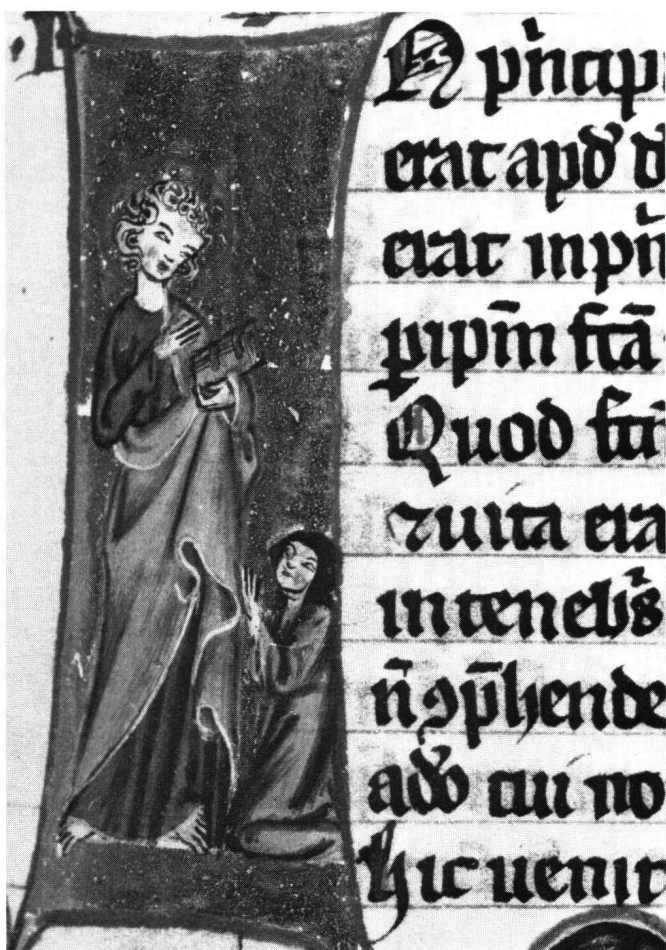 N pn̄cipi
erat apd̕ d
erat inpn̄
ꝑ ip̄m fcā
Quod fc̄
⁊ uita era
in teneb̕s
n̄ ꝯp̄hende
a dō cui no
hic uenit